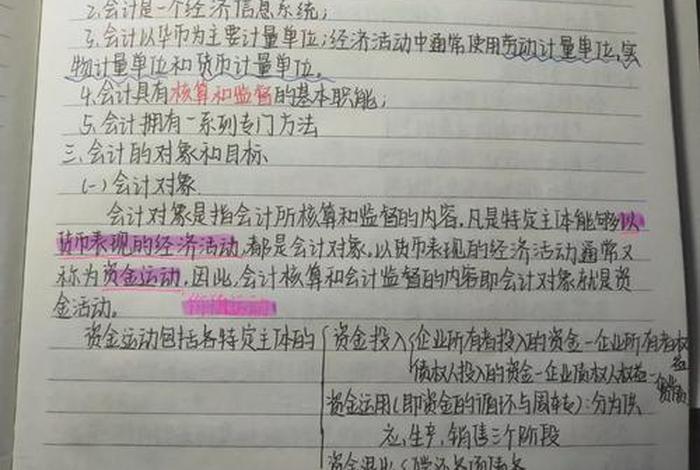 2.会计是一个经济信息系统;
3.会计以货币为主要计量单位;经济活动中通常使用劳动计量单位,实
物计量单位和货币计量单位。
4.会计具有核算和监督的基本职能;
5.会计拥有一系列专门方法
三.会计的对象和目标
(一)会计对象
会计对象是指会计所核算和监督的内容,凡是特定主体能够以
货币表现的经济活动,都是会计对象,以货币表现的经济活动通常又
称为资金运动,因此,会计核算和会计监督的内容即会计对象就是资
金活动。
资金运动包括各特定主体的
资金投入{企业所有者投入的资金-企业所有者权益
债权人投入的资金-企业债权人权益-企业负债
资金运用(即资金的循环与周转):分为供
应,生产,销售三个阶段
资金退出